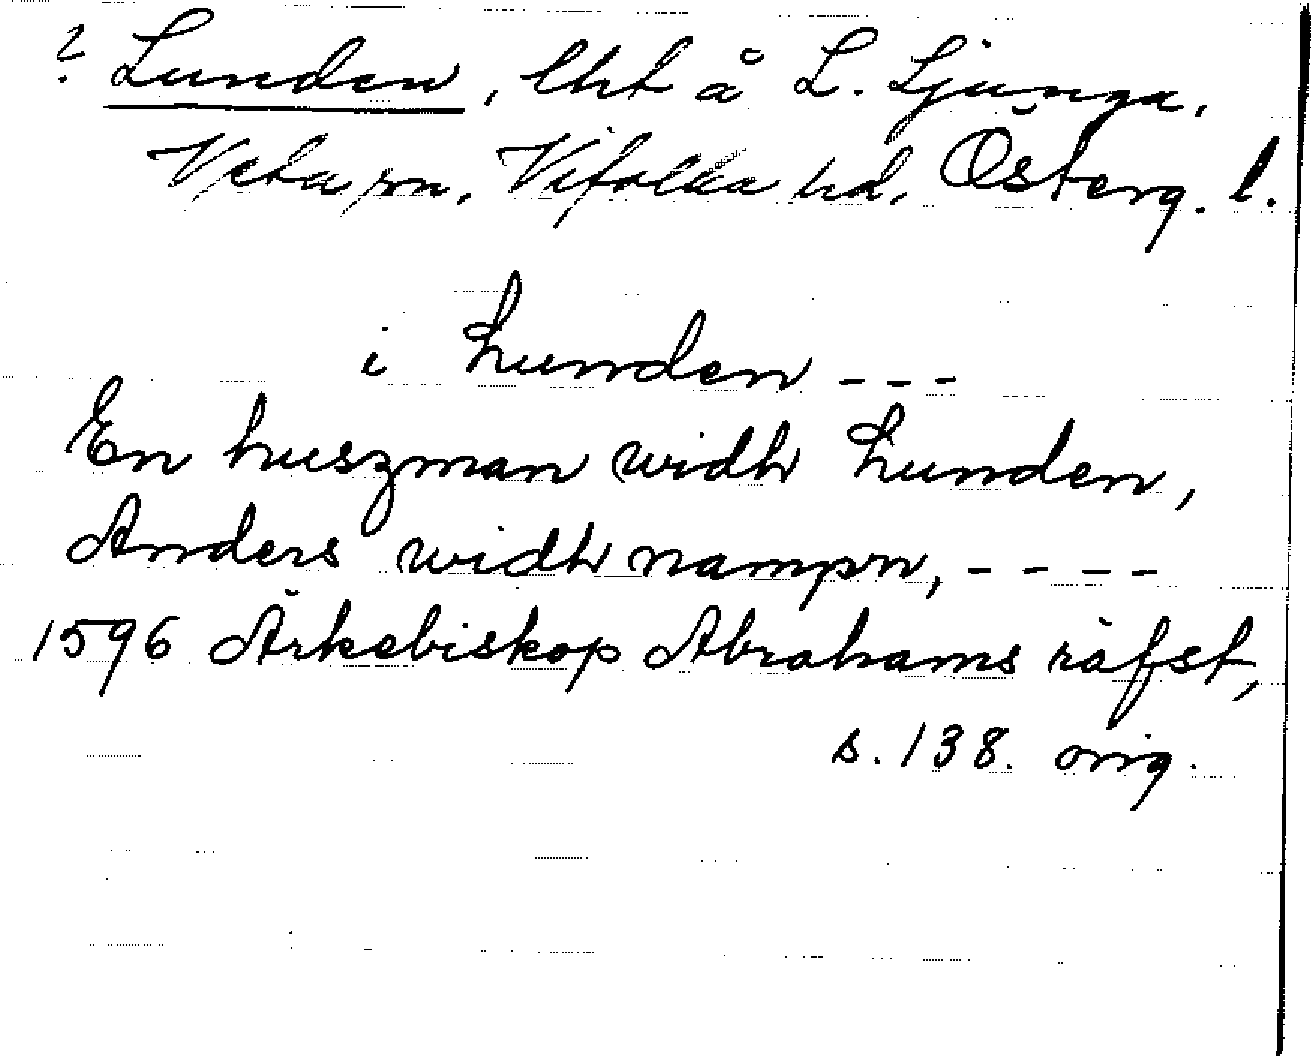 ? Lunden, lht å L. Ljunga,
Veta sn, Vifolka hd, Österg. l.
i Lunden - - -
En huszman widh Lunden,
Anders widh nampn, - - - -
1596 Ärkebiskop Abrahams räfst,
s. 138. orig.